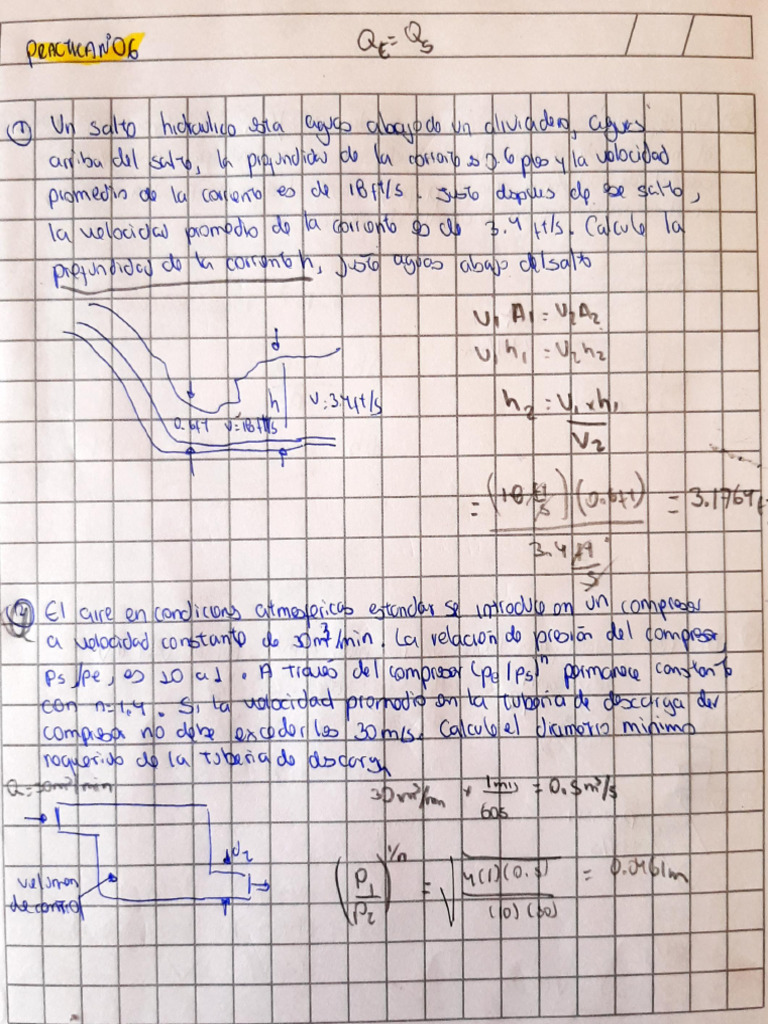 PRACTICA N°06
Qt = Qs
① Un salto hidraulico esta aguas abajo de un dividero, aguas
arriba del salto, la profundidad de la corriente es 0.6 pies y la velocidad
promedio de la corriente es de 18 ft/s. Justo despues de ese salto,
la velocidad promedio de la corriente es de 3.4 ft/s. Calcule la
profundidad de la corriente h, justo aguas abajo del salto
V₁ A₁ = V₂ A₂
V₁ h₁ = V₂ h₂
h₂ = V₁ x h₁ / V₂
h
V=3.4 ft/s
0.6 ft V=18 ft/s
= (18 ft/s)(0.6 ft) / 3.4 ft/s = 3.1764
El aire en condicions atmosfericas estandar se introduce en un compresor
a velocidad constante de 30m³/min. La relación de presión del compresor,
Ps/pe, es 10 a 1. A través del compresor (pe/ps)ⁿ permanece constante
con n=1.4. Si la velocidad promedio en la tuberia de descarga del
compresor no debe exceder los 30 m/s. Calcule el diametro minimo
requerido de la tuberia de descarga
Q=30m³/min
30 m³/min x 1min/60s = 0.5m³/s
d₂
volumen
de control
(P₁/P₂)^1/n = √(4(1)(0.5) / (10)(30)) = 0.0461m